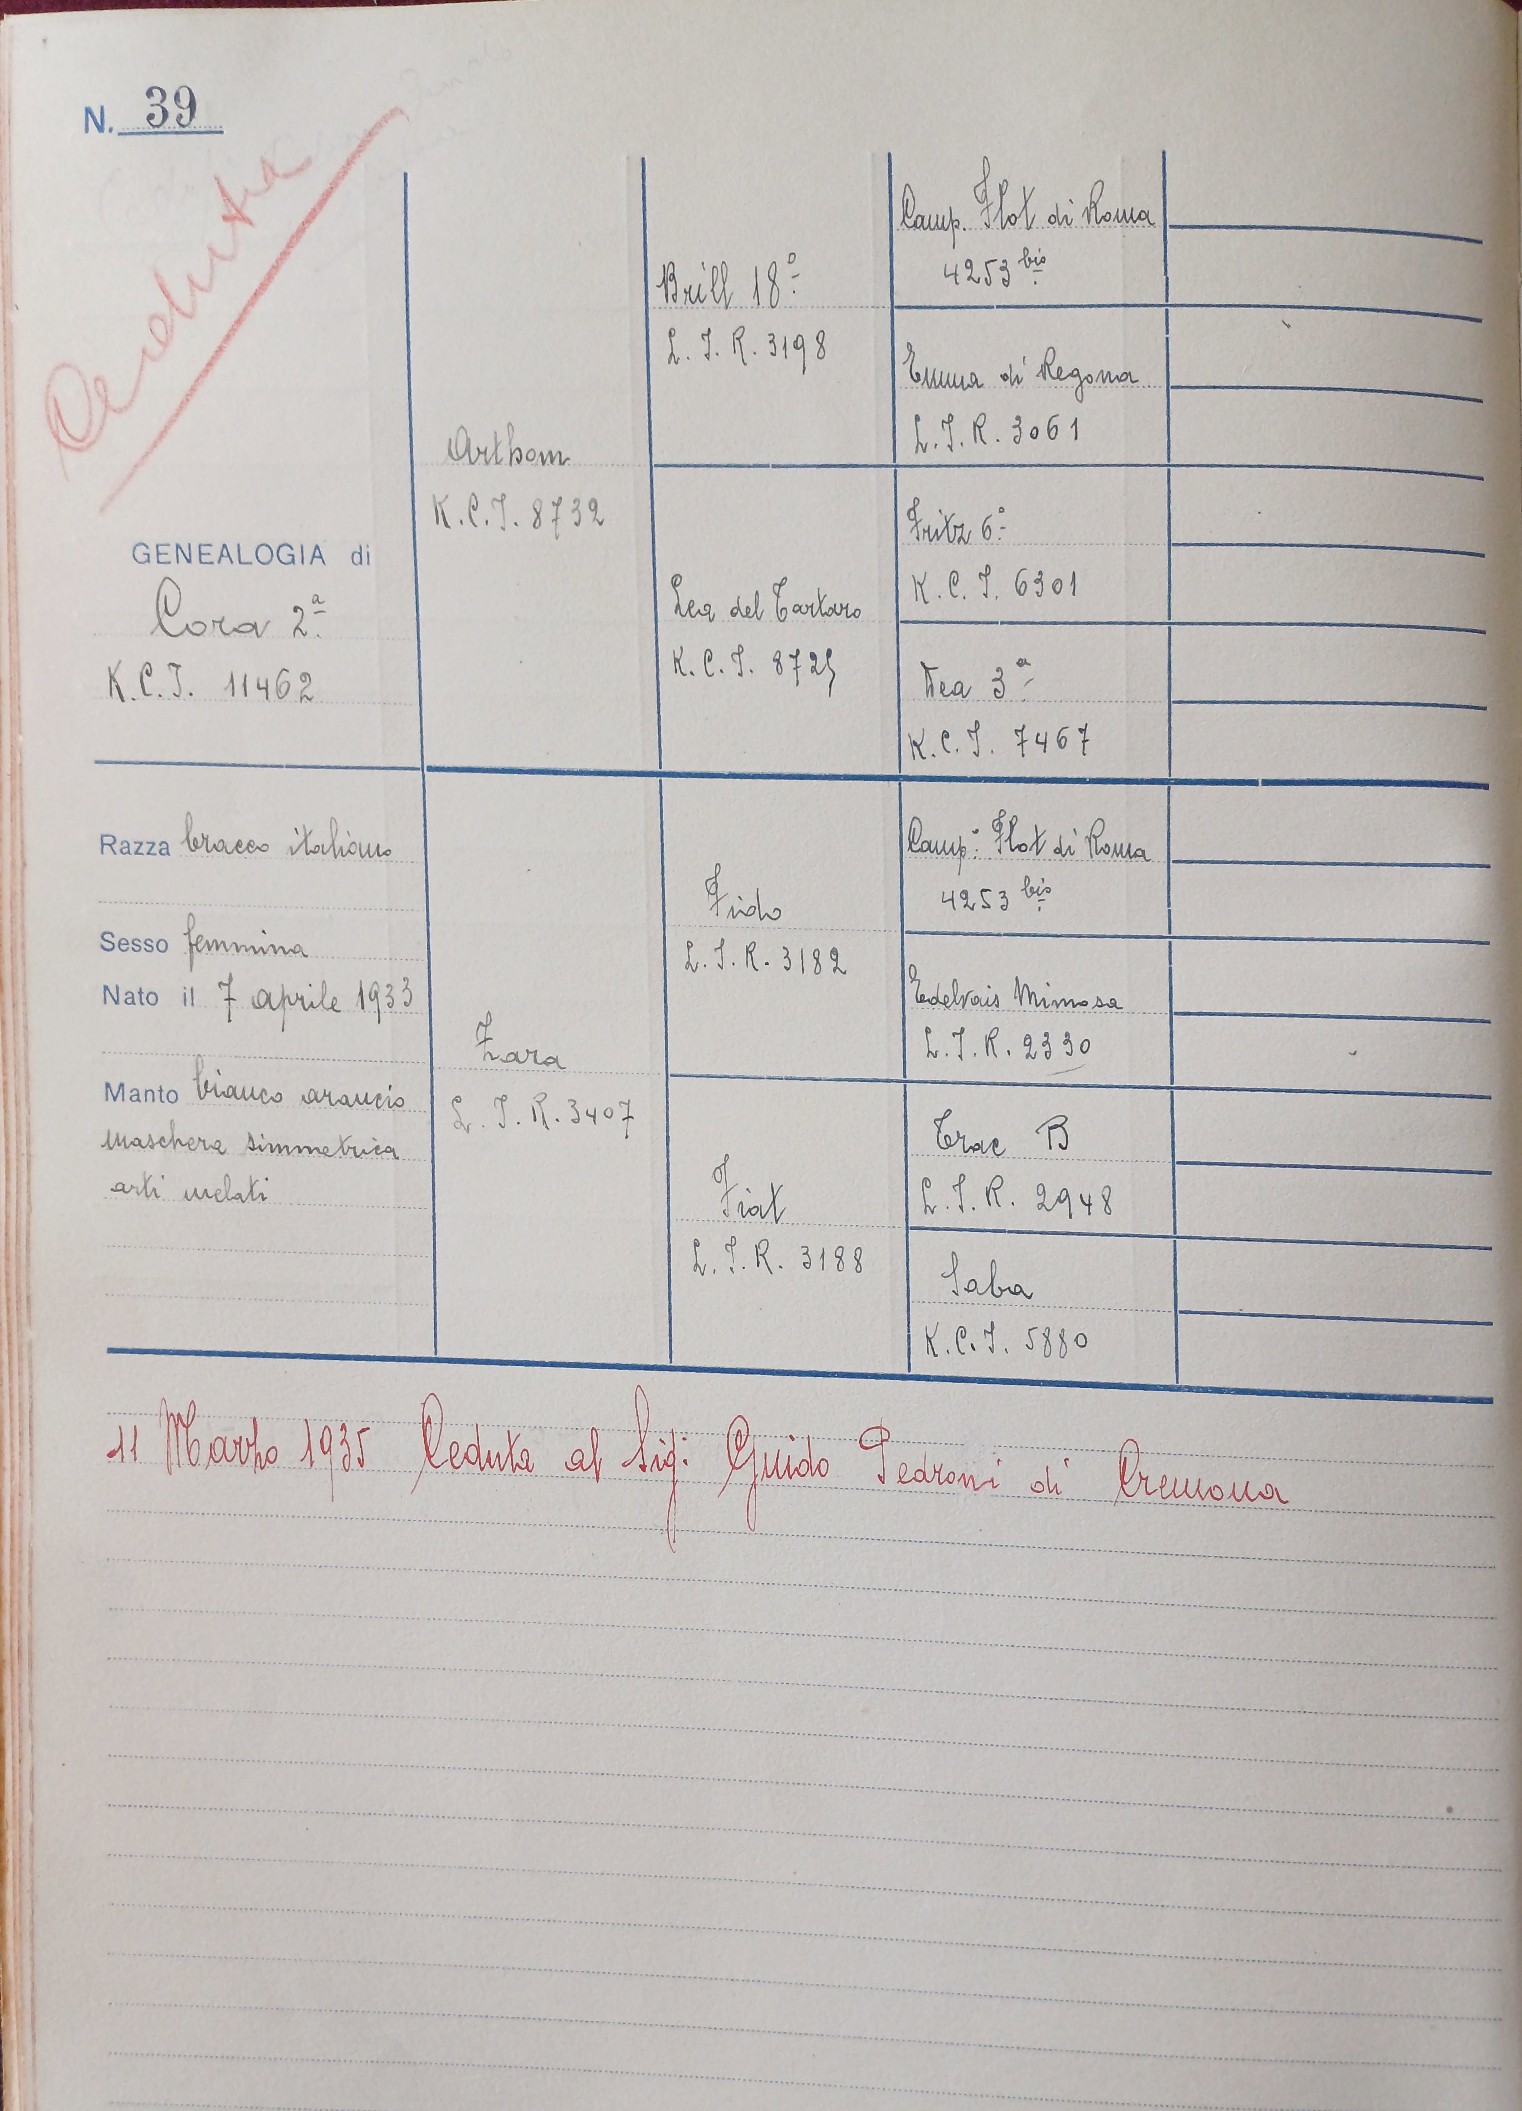 N. 39
Venduta
GENEALOGIA di
Cora 2ª
K.C.I. 11462
Razza bracco italiano
Sesso femmina
Nato il 7 aprile 1933
Manto bianco arancio
maschera simmetrica
arti melati
K.C.I. 8732
Zara
L.I.R. 3407
Brill 18º
L.I.R. 3198
Lea del Tartaro
K.C.I. 8725
Fido
L.I.R. 3182
Fiat
L.I.R. 3188
Camp. Flot di Roma
4253 bis
Emma di Regona
L.I.R. 3061
Fritz 6º
K.C.I. 6301
3ª
K.C.I. 7467
Camp: Flot di Roma
4253 bis
Edelvais Mimosa
L.I.R. 2330
Trac B
L.I.R. 2948
Saba
K.C.I. 5880
11 Marzo 1935 Ceduta al Sig: Guido Pedroni di Cremona